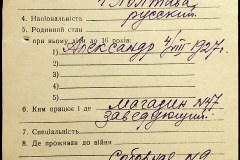 г. Полтава
4. Національність русский.
5. Родинний стан
при ньому діти до 16 років:
1) Александр 4/VIII 1927 г.
2)
3)
4)
5)
6. Ким працює і де магазин №47
заведующий.
7. Спеціальність
8. Де проживав до війни
Соборная №9